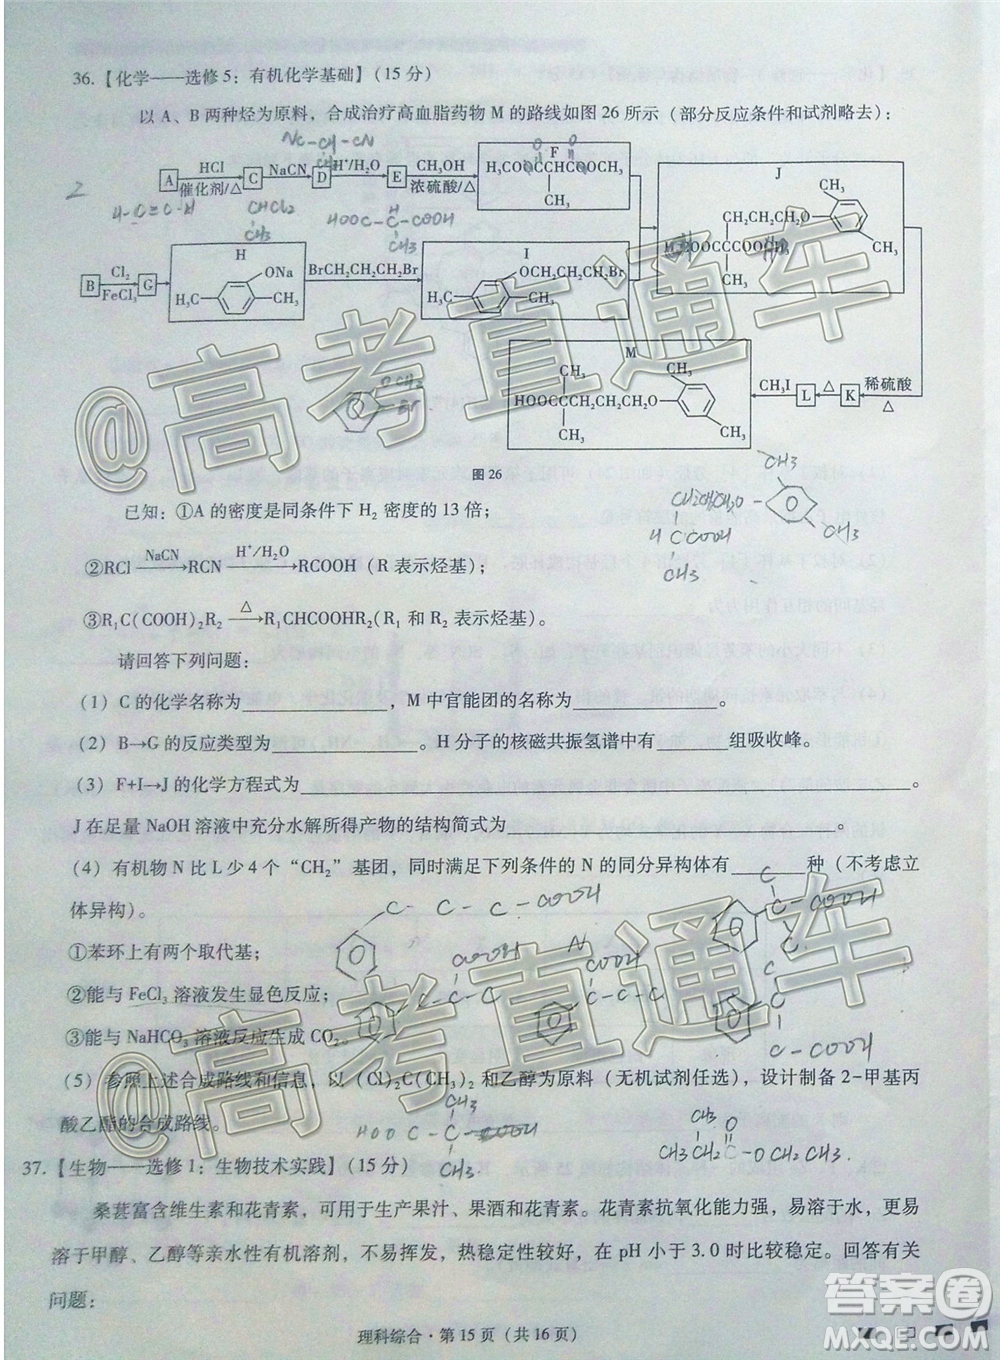 36.【化学——选修5：有机化学基础】（15分）
以A、B两种烃为原料，合成治疗高血脂药物M的路线如图26所示（部分反应条件和试剂略去）：
NC-CH-CN
CH3
A HCl 催化剂/△ C NaCN D H⁺/H₂O E CH₃OH 浓硫酸/△
F
H₃COOCCHCOOCH₃
CH₃
J
CH₂CH₂CH₂O
CH₃
H₃COOCCCOOCH₃
CH₃
CH₃
2
H-C≡C-H
CHCl2
CH3
HOOC-C-COOH
H
CH3
B Cl₂ FeCl₃ G
H
ONa
H₃C
CH₃
BrCH₂CH₂CH₂Br
I
OCH₂CH₂CH₂Br
H₃C
CH₃
M
CH₃
HOOCCCH₂CH₂CH₂O
CH₃
CH₃
CH₃
CH₃I L △ K 稀硫酸 △
图26
已知：①A的密度是同条件下H₂密度的13倍；
②RCl NaCN RCN H⁺/H₂O RCOOH（R表示烃基）；
③R₁C(COOH)₂R₂ △ R₁CHCOOHR₂(R₁和R₂表示烃基)。
CH3
CH3
H C COOH
CH3
请回答下列问题：
（1）C的化学名称为____________，M中官能团的名称为____________。
（2）B→G的反应类型为____________。H分子的核磁共振氢谱中有______组吸收峰。
（3）F+I→J的化学方程式为____________。
J在足量NaOH溶液中充分水解所得产物的结构简式为____________。
（4）有机物N比L少4个“CH₂”基团，同时满足下列条件的N的同分异构体有______种（不考虑立
体异构）。
C-C-C-COOH
①苯环上有两个取代基；
②能与FeCl₃溶液发生显色反应；
③能与NaHCO₃溶液反应生成CO₂。
C-COOH
（5）参照上述合成路线和信息，以(Cl)₂C(CH₃)₂和乙醇为原料（无机试剂任选），设计制备2-甲基丙
酸乙酯的合成路线。
CH3
HOOC C
CH3
37.【生物——选修1：生物技术实践】（15分）
桑葚富含维生素和花青素，可用于生产果汁、果酒和花青素。花青素抗氧化能力强，易溶于水，更易
溶于甲醇、乙醇等亲水性有机溶剂，不易挥发，热稳定性较好，在pH小于3.0时比较稳定。回答有关
问题：
理科综合·第15页（共16页）
@高考直通车
@高考直通车
答案圈